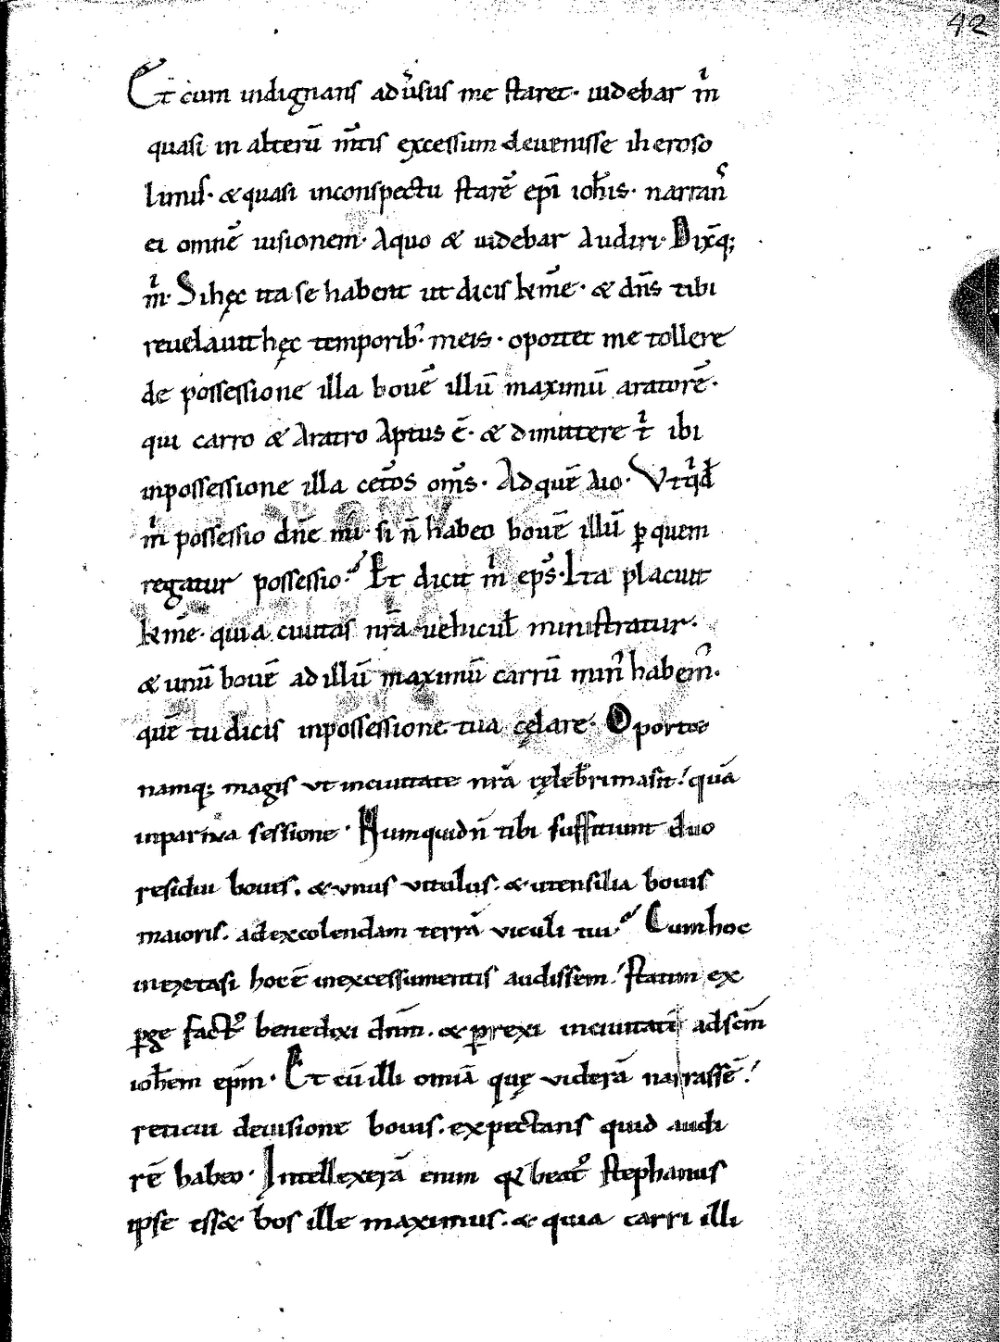 42
Et cum indignans adu͛sus me staret· uidebar m̍
quasi in alterū m̄tis excessum deuenisse iheroso
limis· &quasi inconspectu starē ep̄i ioh̄is· narrans
ei omnē uisionem· Aquo & uidebar Audiri· Dix̄q;
m̍· Sihęc ita se habent ut dicis km̄e· & dn̄s tibi
reuelauit hęc temporib᾽ meis· oportet me tollere
de possessione illa bouē illū maximū aratorē·
qui carro & Aratro Aptus ē· & dimittere t̍ ibi
inpossessione illa cet̄os om̄s· Ad quē Aio· Vtq̍d
m̍ possessio dn̄e mi· si n̄ habeo bouē illū ꝑ quem
regatur possessio? Et dicit m̍ ep̄s· Ita placuit
km̄e· quia ciuitas nr̄a uehicul̄ ministratur·
& unū bouē ad illū maximū carrū min᾽ habem᾽·
quē tu dicis inpossessione tua cęlare· Oporte
namq; magis ut inciuitate nr̄a cęleb̄rimasit! quā
inparina sessione· Numquidn̄ tibi sufficiunt duo
residui boues. & unus uitulus. & utensilia bouis
maioris. adexcolendam terrā uiculi tui? Cumhoc
inextasi hocē inexcessumentis audissem! Statim ex
ꝑge fact᾽ benedixi dn̄m. & ꝑrexi inciuitatē adscm̄
ioh̄em ep̄m· Et cū illi omīa quę uiderā narrassē!
reticui deuisione bouis. expectans quid audi
rē habeo· Intellexerā enim qđ beat᾽ stephanus
ipse ess& bos ille maximus. & quia carri illi